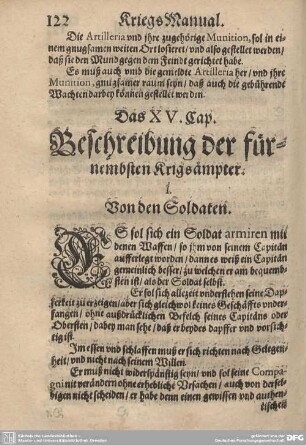 122 Kriegs Manual.
Die Artilleria vnd jhre zugehörige Munition, sol in ei-
nem gnugsamen weiten Ort losieret/ vnd also gestellet werden/
daß sie den Mund gegen dem Feindt gerichtet habe.
Es muß auch vmb die gemeldte Artilleria her/ vnd jhre
Munition, gnugsamer raum seyn/ daß auch die gebührende
Wachten darbey können gestellet werden.
Das XV. Cap.
Beschreibung der für-
nembsten Krigsämpter.
I.
Von den Soldaten.
ES sol sich ein Soldat armiren mit
denen Waffen/ so jhm von seinem Capitän
aufferlegt worden/ dann es weiß ein Capitän
gemeinlich besser/ zu welchen er am bequemb-
sten ist/ als der Soldat selbst.
Er sol sich allezeit vnderstehen seine Dap-
fferkeit zu erzeigen/ aber sich gleichwol keines Geschäffts vnder-
fangen/ ohne außdrücklichen Befelch seines Capitäns oder
Obersten/ dabey man sehe/ daß er beydes dapffer vnd vorsich-
tig ist.
Im essen vnd schlaffen muß er sich richten nach Gelegen-
heit/ vnd nicht nach seinem Willen.
Er muß nicht widerspänstig seyn/ vnd sol seine Compa-
gni nit verändern ohne erhebliche Vrsachen/ auch von derselbigen nicht scheiden/ er habe dann einen gewissen vnd authen-
tischen